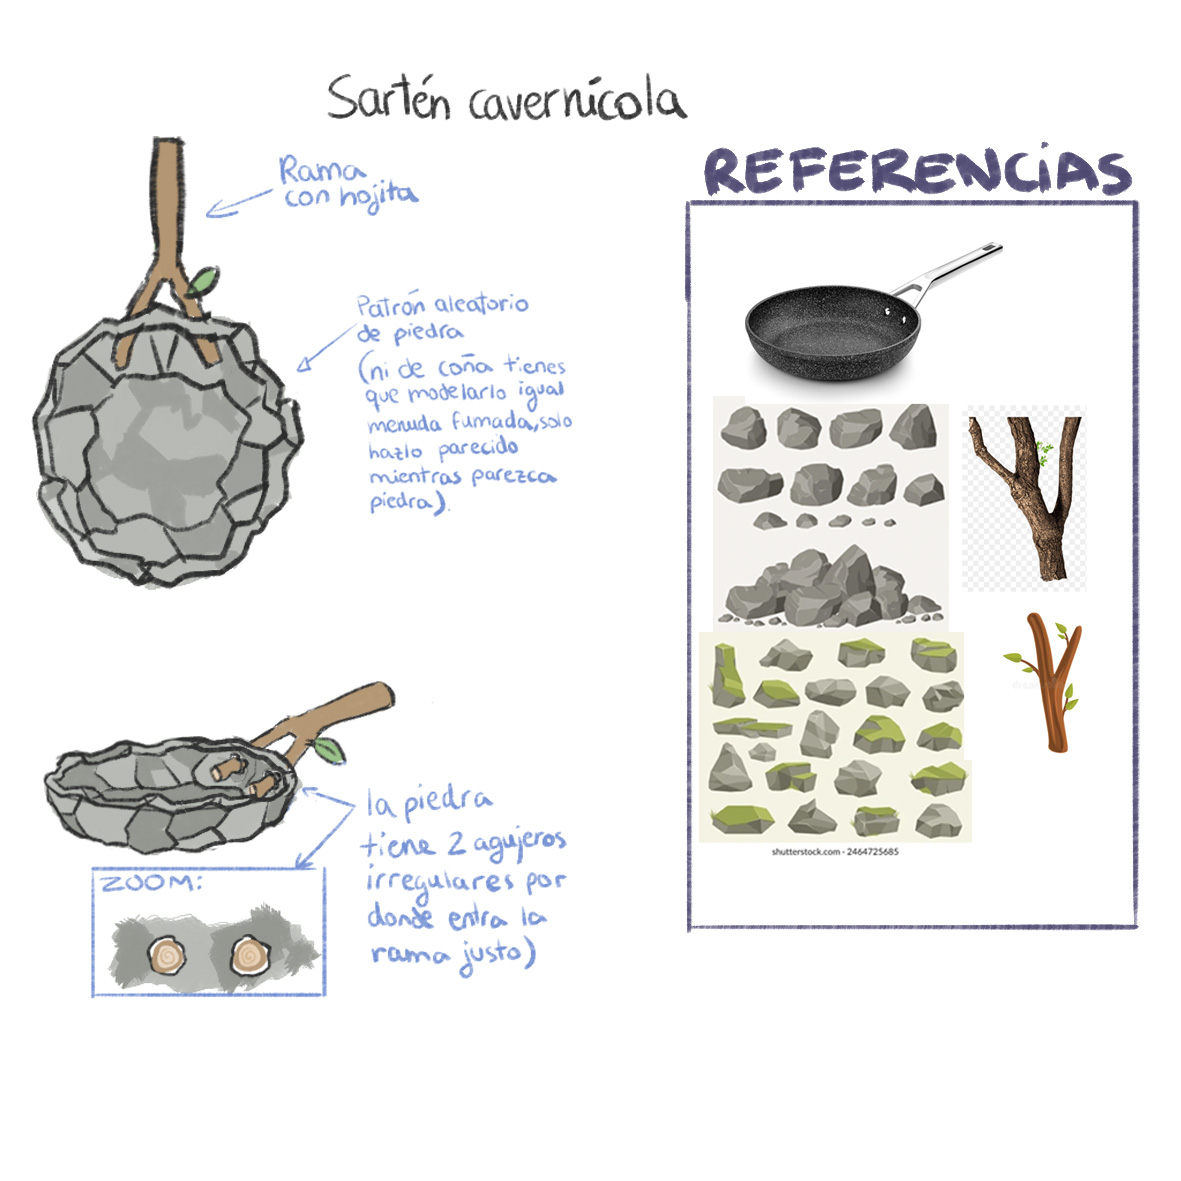 Sartén cavernícola
Rama
con hojita
Patrón aleatorio
de piedra
(ni de coña tienes
que modelarlo igual
menuda fumada, solo
hazlo parecido
mientras parezca
piedra).
la piedra
tiene 2 agujeros
irregulares por
donde entra la
rama justo)
ZOOM:
REFERENCIAS
shutterstock.com · 2464725685